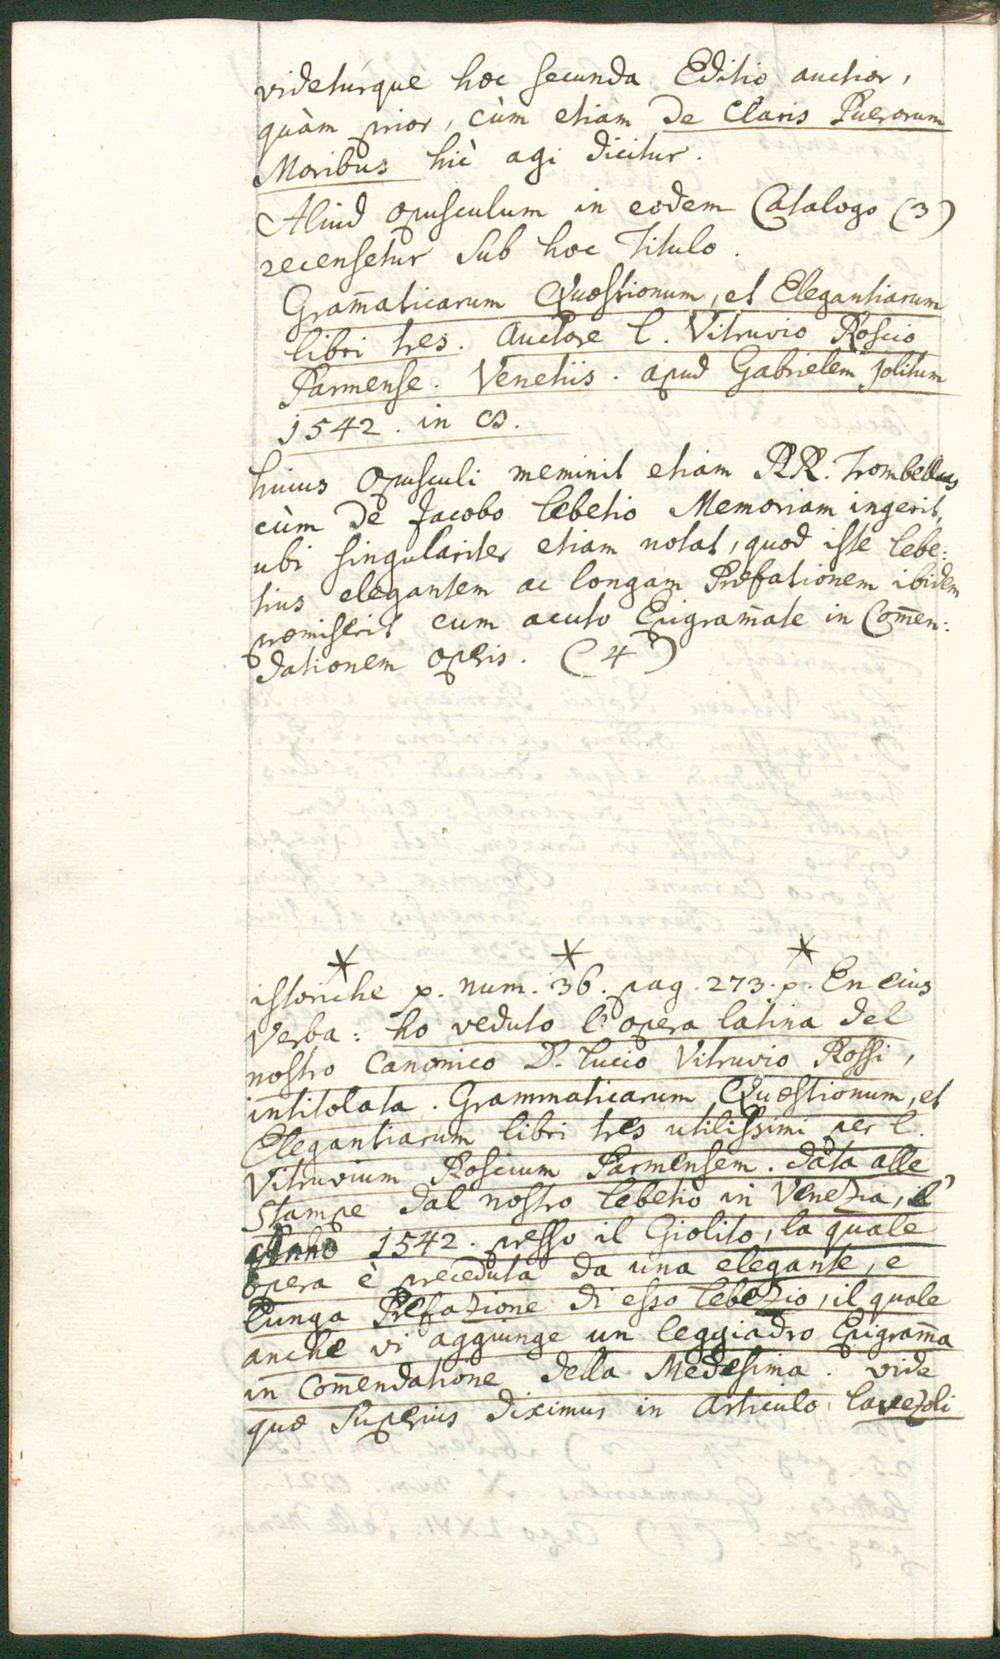 videturque hoc secunda Editio auctior,
quàm prior, cùm etiam De Claris Puerorum
Moribus hìc agi dicitur.
Aliud opusculum in eodem Catalogo (3)
recensetur sub hoc Titulo.
Gram̄aticarum Quæstionum, et Elegantiarum
libri tres. Auctore L. Vitruvio Roscio
Parmense. Venetiis. apud Gabrielem Jolitum
1542. in 8.
huius opusculi meminit etiam RR. Trombellus
cùm De Jacobo Lebetio Memoriam ingerit,
ubi singulariter etiam notat, quod iste Lebe:
tius elegantem ac longam Præfationem ibidem
præmiserit cum acuto Epigram̄ate in Com̄en:
dationem operis. (4)
* * *
istoriche p. num. 36. pag. 273. p. En eius
Verba: ho veduto l'opera latina del
nostro Canonico D. Lucio Vitruvio Rossi,
intitolata. Grammaticarum Quæstionum, et
Elegantiarum libri tres utilissimi per L.
Vitruvium Roscium Parmensem. data alle
Stampe dal nostro Lebetio in Venezia, l'
Anno 1542. presso il Giolito, la quale
opera è preceduta da una elegante, e
lunga Prefazione di esso Lebezio, il quale
anche vi aggiunge un leggiadro Epigram̄a
in Com̄endatione della Medesima. vide
quæ superius diximus in Articulo Lavezoli